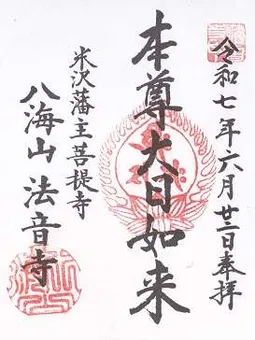 令和七年六月廿三日奉拝
本尊大日如来
米沢藩主菩提寺
八海山法音寺